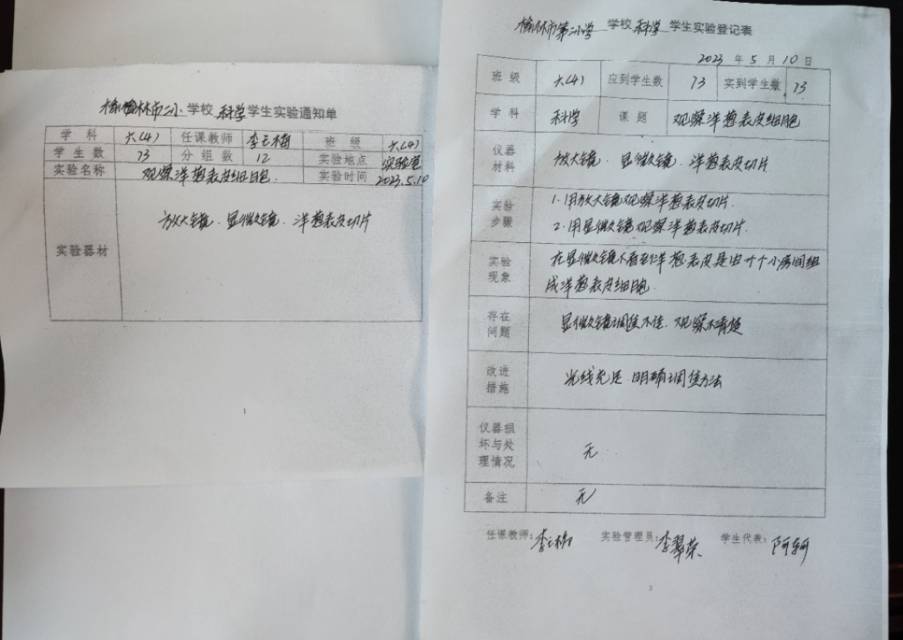 榆林市二小 学校 科学 学生实验通知单
学 科 六(4) 任课教师 李玉梅 班 级 六(4)
学 生 数 73 分 组 数 12 实验地点 实验室
实验名称 观察洋葱表皮细胞. 实验时间 2023.5.10
实验器材 放大镜、显微镜、洋葱表皮切片
1
榆林市第二小学 学校 科学 学生实验登记表
2023 年 5 月 10 日
班 级 六(4) 应到学生数 73 实到学生数 73
学 科 科学 课 题 观察洋葱表皮细胞
仪器
材料
放大镜、显微镜、洋葱表皮切片
实验
步骤
1.用放大镜观察洋葱表皮切片.
2.用显微镜观察洋葱表皮切片.
实验
现象
在显微镜下看到洋葱表皮是由一个个小房间组
成洋葱表皮细胞.
存在
问题
显微镜调焦不准、观察不清楚
改进
措施
光线充足、明确调焦方法
仪器损
坏与处
理情况
无
备注 无
任课教师: 李玉梅 实验管理员: 李翠荣 学生代表: